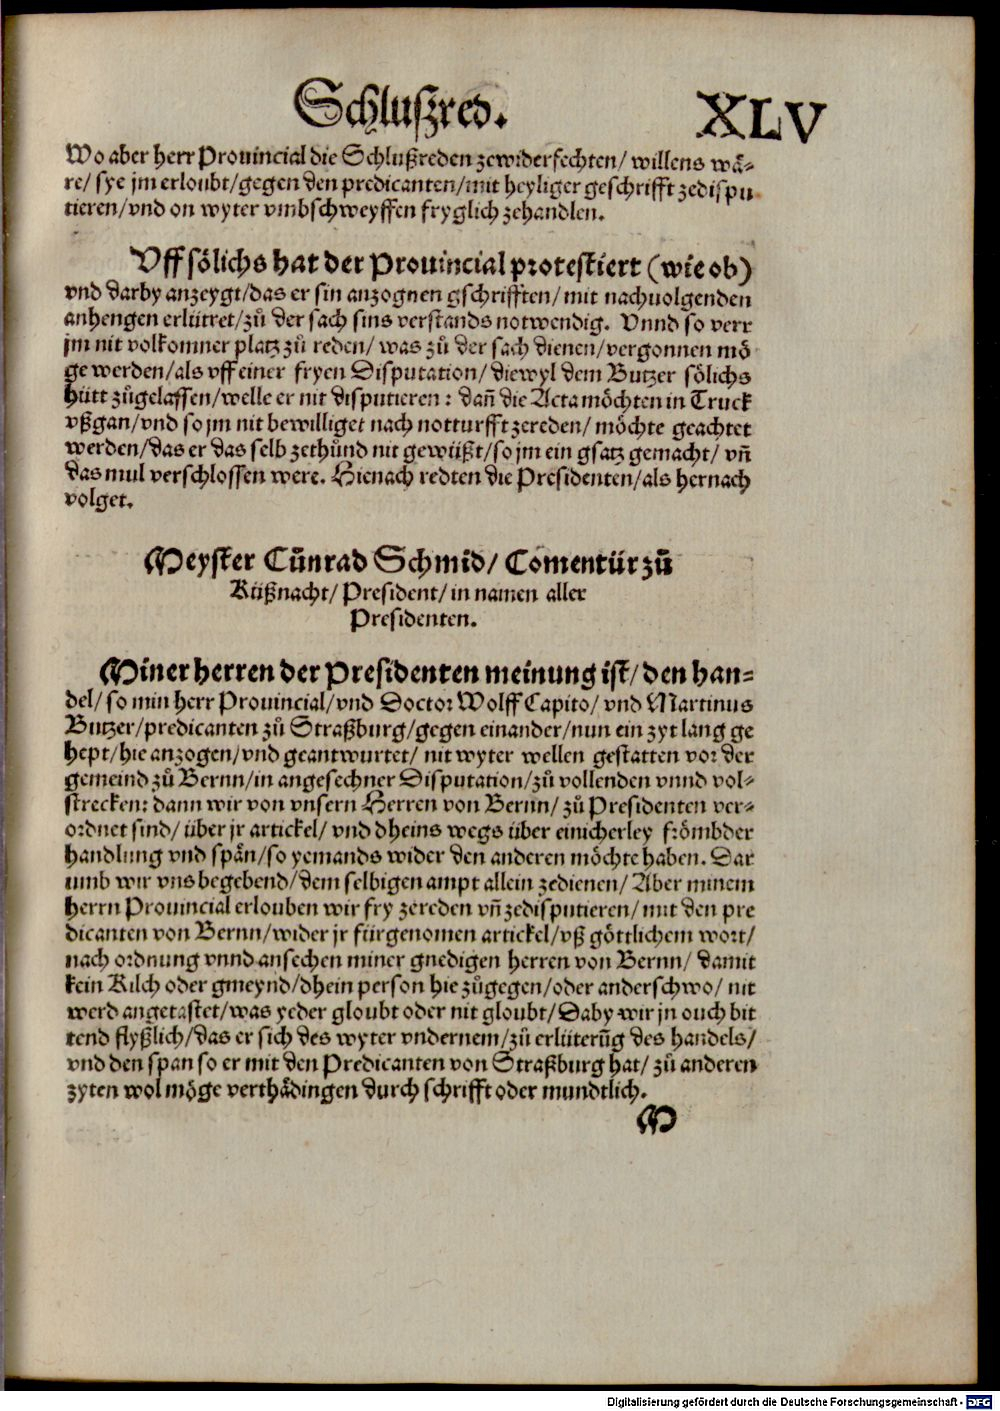 Schlußred. XLV
Wo aber herr Prouincial die Schlußreden zewiderfechten/ willens wä-
re/ sye jm erloubt/ gegen den predicanten/ mit heyliger geschrifft zedispu
tieren/ vnd on wyter vmbschweyffen fryglich zehandlen.
Vff sölichs hat der Prouincial protestiert (wie ob)
vnd darby anzeygt/ das er sin anzognen gschrifften/ mit nachuolgenden
anhengen erlütret/ zů der sach sins verstands notwendig. Vnnd so verr
jm nit volkomner platz zů reden/ was zů der sach dienen/ vergonnen mö
ge werden/ als vff einer fryen Disputation/ diewyl dem Butzer sölichs
hütt zůgelassen/ welle er nit disputieren: dañ die Acta möchten in Truck
vßgan/ vnd so jm nit bewilliget nach notturfft zereden/ möchte geachtet
werden/ das er das selb zethůnd nit gewüßt/ so jm ein gsatz gemacht/ vñ
das mul verschlossen were. Hienach redten die Presidenten/ als hernach
volget.
Meyster Cůnrad Schmid/ Comentür zů
Küßnacht/ President/ in namen aller
Presidenten.
Miner herren der Presidenten meinung ist/ den han-
del/ so min herr Prouincial/ vnd Doctor Wolff Capito/ vnd Martinus
Butzer/ predicanten zů Straßburg/ gegen einander/ nun ein zyt lang ge
hept/ hie anzogen/ vnd geantwurtet/ nit wyter wellen gestatten vor der
gemeind zů Bernn/ in angesechner Disputation/ zů vollenden vnnd vol-
strecken: dann wir von vnsern Herren von Bernn/ zů Presidenten ver-
ordnet sind/ über jr artickel/ vnd dheins wegs über einicherley frömbder
handlung vnd spän/ so yemands wider den anderen möchte haben. Dar
umb wir vns begebend/ dem selbigen ampt allein zedienen/ Aber minem
herrn Prouincial erlouben wir fry zereden vñ zedisputieren/ mit den pre
dicanten von Bernn/ wider jr fürgenomen artickel/ vß göttlichem wort/
nach ordnung vnnd ansechen miner gnedigen herren von Bernn/ damit
kein Kilch oder gmeynd/ dhein person hie zůgegen/ oder anderschwo/ nit
werd angetastet/ was yeder gloubt oder nit gloubt/ Daby wir jn ouch bit
tend flyßlich/ das er sich des wyter vndernem/ zů erlüterũg des handels/
vnd den span so er mit den Predicanten von Straßburg hat/ zů anderen
zyten wol möge verthädingen durch schrifft oder mundtlich.
M
Digitalisierung gefördert durch die Deutsche Forschungsgemeinschaft - DFG